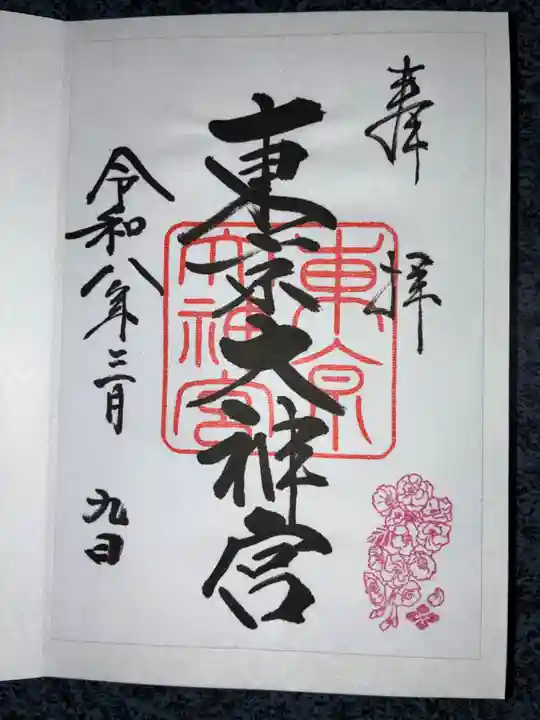 奉拝
東京大神宮
東京
大神宮
令和八年三月
九日